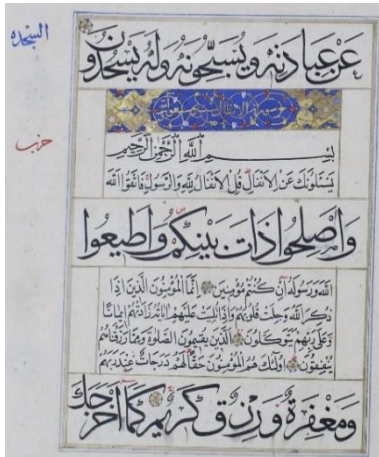 السجده
عَنْ عِبَادَتِهِ وَيُسَبِّحُونَهُ وَلَهُ يَسْجُدُونَ
سورة الانفال
حزب
بِسْمِ اللَّهِ الرَّحْمَنِ الرَّحِيمِ
يَسْئَلُونَكَ عَنِ الْاَنْفَالِ قُلِ الْاَنْفَالُ لِلَّهِ وَالرَّسُولِ فَاتَّقُوا اللَّهَ
وَاَصْلِحُوا ذَاتَ بَيْنِكُمْ وَاَطِيعُوا
اللَّهَ وَرَسُولَهُ اِنْ كُنْتُمْ مُؤْمِنِينَ اِنَّمَا الْمُؤْمِنُونَ الَّذِينَ اِذَا
ذُكِرَ اللَّهُ وَجِلَتْ قُلُوبُهُمْ وَاِذَا تُلِيَتْ عَلَيْهِمْ اٰيَاتُهُ زَادَتْهُمْ اِيمَانًا
وَعَلَى رَبِّهِمْ يَتَوَكَّلُونَ الَّذِينَ يُقِيمُونَ الصَّلٰوةَ وَمِمَّا رَزَقْنَاهُمْ
يُنْفِقُونَ اُولٰئِكَ هُمُ الْمُؤْمِنُونَ حَقًّا لَهُمْ دَرَجَاتٌ عِنْدَ رَبِّهِمْ
وَمَغْفِرَةٌ وَرِزْقٌ كَرِيمٌ كَمَا اَخْرَجَكَ